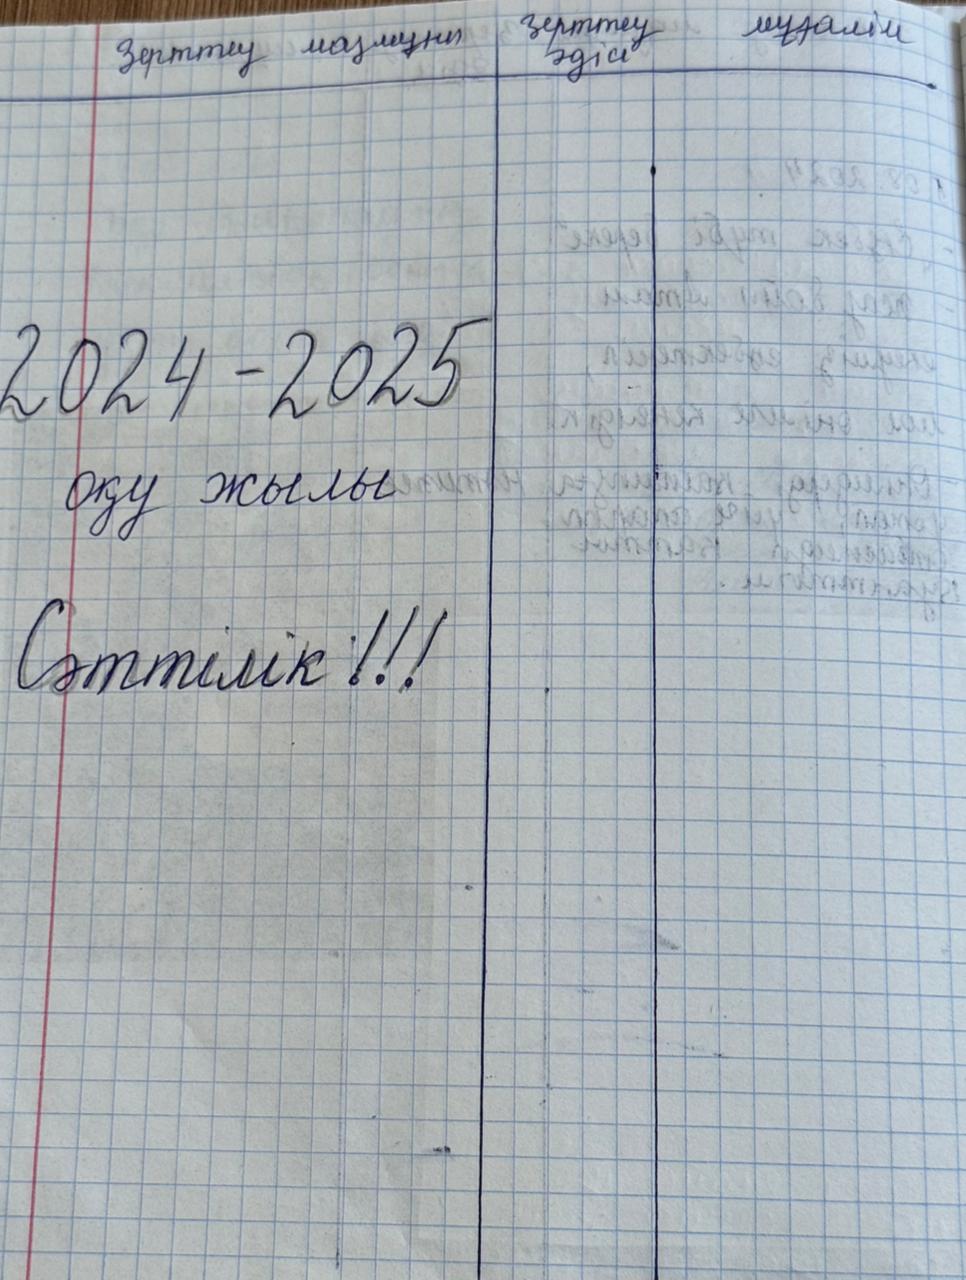 Зерттеу мазмұны
Зерттеу
әдісі
мұғалім
2024-2025
оқу жылы
Сәттілік!!!